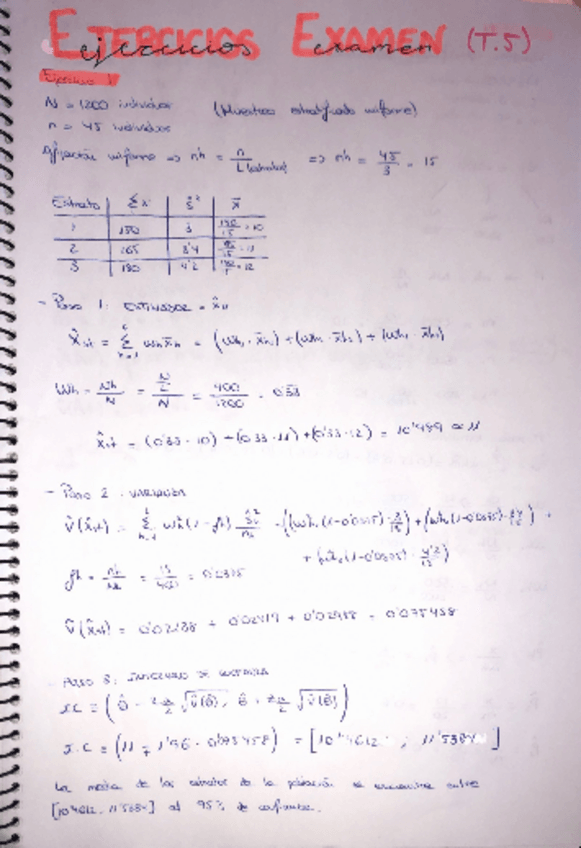 EJERCICIOS EXAMEN (T.5)
ejercicios examen
Ejercicio 1
N = 1200 individuos (Muestreo estratificado uniforme)
n = 45 individuos
Afijación uniforme => nh = n / L (estratos) => nh = 45/3 = 15
Estrato | Σx | ŝ² | x̄
1 | 150 | 3 | 150/15 = 10
2 | 165 | 3'4 | 165/15 = 11
3 | 180 | 4'2 | = 12
- Paso 1: ESTIMADOR = x̂st
x̂st = Σ wh x̄h = (wh · x̄h) + (wh · x̄h) + (wh · x̄h)
Wh = Nh/N = (N/L)/N = 400/1200 = 0'33
x̂st = (0'33 · 10) + (0'33 · 11) + (0'33 · 12) = 10'999 ∝ 11
- Paso 2: VARIANZA
V̂(x̂st) = Σ wh²(1 - fh) ŝh²/nh = (wh²(1-0'0375) · 3/15) + (wh²(1-0'0375) · 3'4/15) +
+ (wh²(1-0'0375) · 4'2/15)
fh = nh/Nh = 15/400 = 0'0375
V̂(x̂st) = + 0'02419 + = 0'075458
- PASO 3: INTERVALO DE CONFIANZA
IC = (θ̂ - zα/2 √V̂(θ̂) ; θ̂ + zα/2 √V̂(θ̂))
I.C = (11 ∓ 1'96 · 0'075458) = [10'4612 ; 11'5384]
La media de los estratos de la población se encuentra entre
[10'4612, 11'5384] al 95% de confianza.